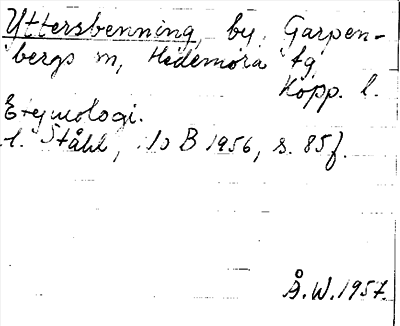 Uttersbenning, by, Garpen-
bergs sn, Hedemora tg
Kopp. l.
Etymologi.
Ståhl, NoB 1956, s. 85f.
Å.W. 1957.